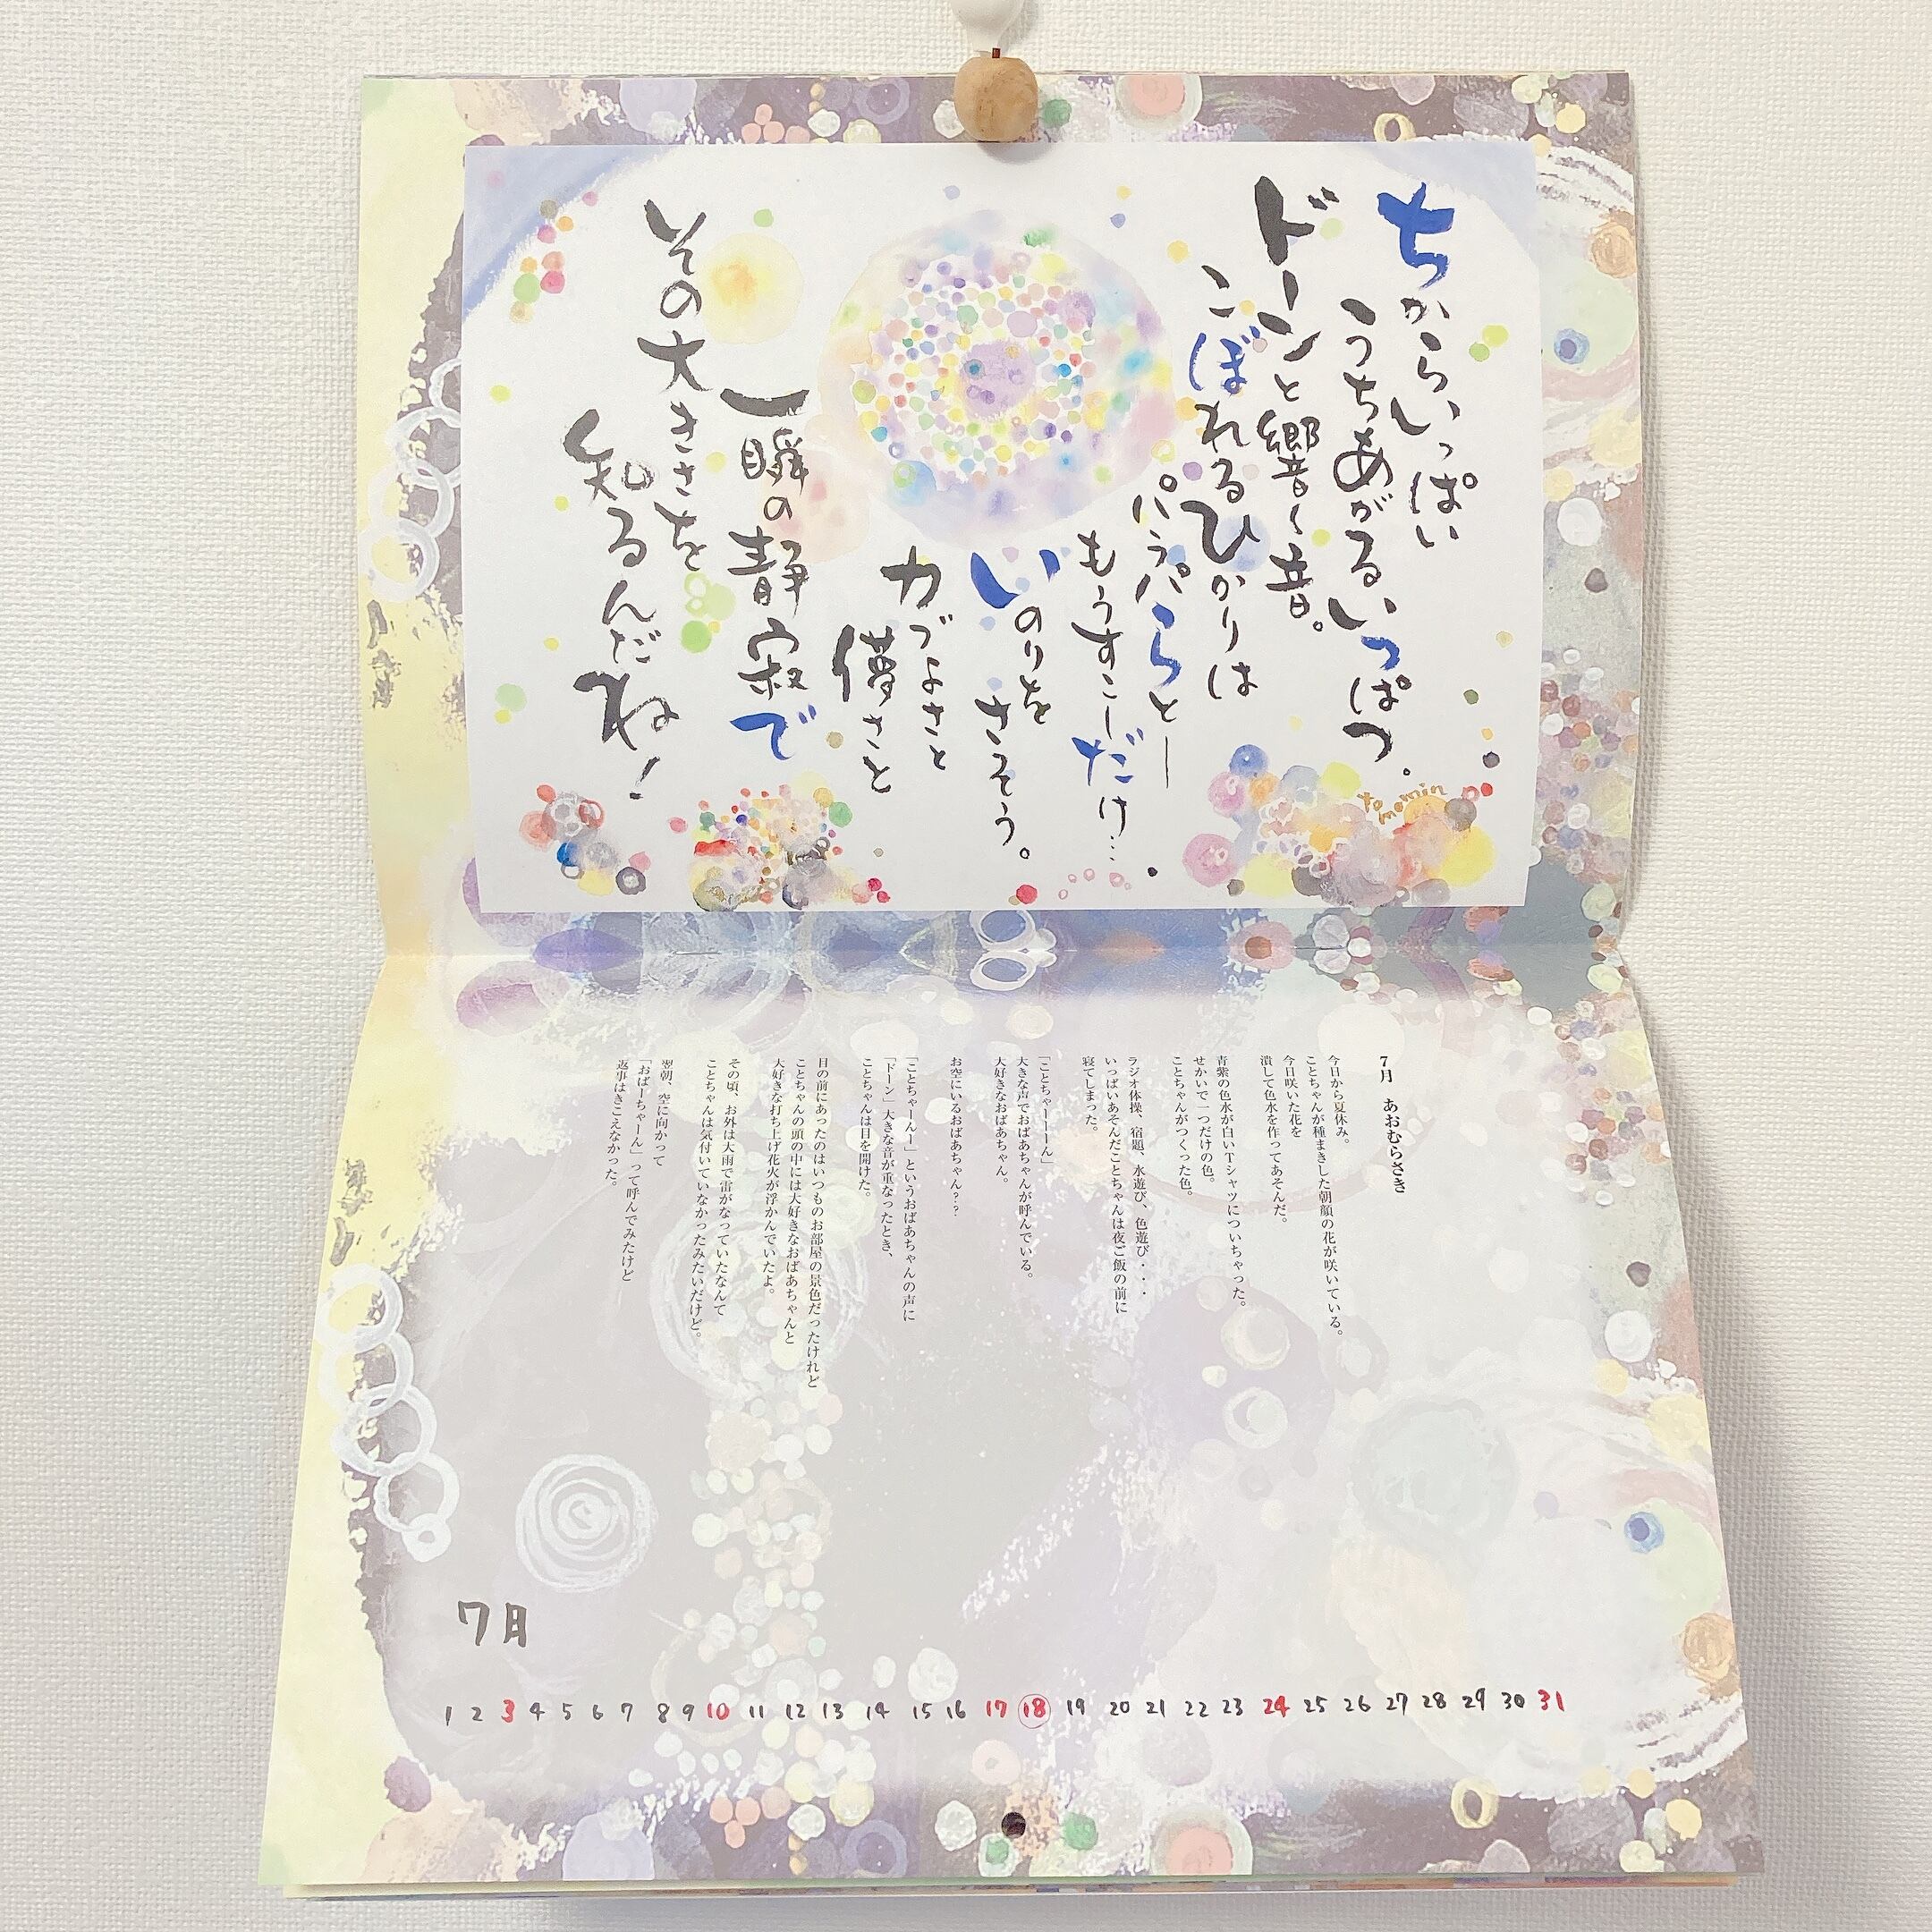 ちからいっぱい
うちあがるいっぱつ。
ドーンと響く音。
こぼれるひかりは
パラパらとー
もうすこーしだけ…
いのりを
ささそう。
力づよさと
儚さと
一瞬の静寂で
その大きさを
知るんだね！
tomomin
7月 あおむらさき
今日から夏休み。
ことちゃんが種まきした朝顔の花が咲いている。
今日咲いた花を
潰して色水を作ってあそんだ。
青紫の色水が白いTシャツについちゃった。
せかいで一つだけの色。
ことちゃんがつくった色。
ラジオ体操、宿題、水遊び、色遊び・・・
いっぱいあそんだことちゃんは夜ご飯の前に
寝てしまった。
「ことちゃーーーん」
大きな声でおばあちゃんが呼んでいる。
大好きなおばあちゃん。
お空にいるおばあちゃん??
「ことちゃーんー」というおばあちゃんの声に
「ドーン」大きな音が重なったとき、
ことちゃんは目を開けた。
目の前にあったのはいつものお部屋の景色だったけれど
ことちゃんの頭の中には大好きなおばあちゃんと
大好きな打ち上げ花火が浮かんでいたよ。
その頃、お外は大雨で雷がなっていたなんて
ことちゃんは気付いていなかったみたいだけど。
翌朝、空に向かって
「おばーちゃーん」って呼んでみたけど
返事はきこえなかった。
7月
1 2 3 4 5 6 7 8 9 10 11 12 13 14 15 16 17 18 19 20 21 22 23 24 25 26 27 28 29 30 31